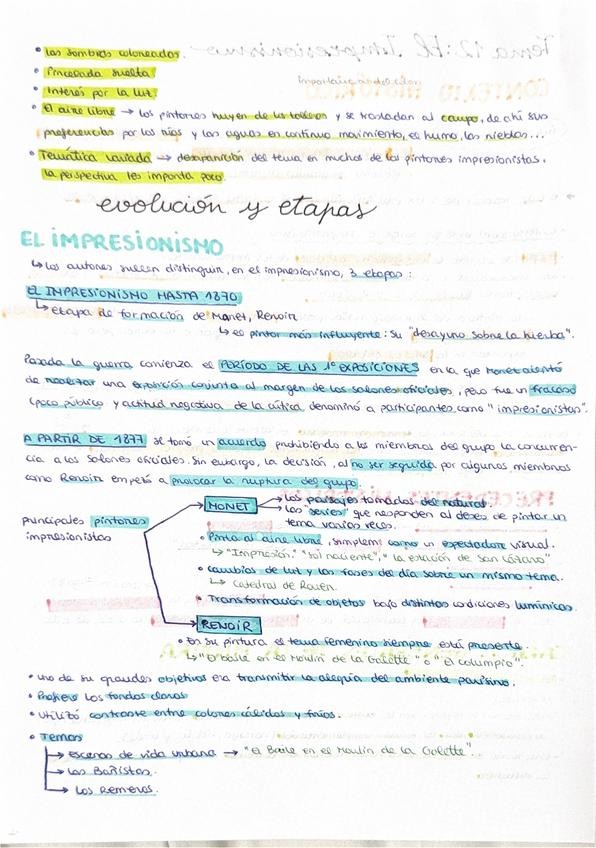 • Las sombras coloreadas.
• Pincelada suelta
• Interés por la luz
• El aire libre → los pintores huyen de los talleres y se trasladan al campo, de ahí sus
preferencias por los ríos y las aguas en continuo movimiento, el humo, las nieblas...
• Temática variada → desaparición del tema en muchos de los pintores impresionistas.
La perspectiva les importa poco.
evolución y etapas
EL IMPRESIONISMO
↳ Los autores suelen distinguir, en el impresionismo, 3 etapas:
EL IMPRESIONISMO HASTA 1870
↳ etapa de formación de Manet, Renoir
↳ es el pintor más influyente: su "desayuno sobre la hierba".
Pasada la guerra, comienza el PERÍODO DE LAS 1º EXPOSICIONES en la que Monet alentó
de realizar una exposición conjunta al margen de los salones oficiales, pero fue un fracaso
(poco público y actitud negativa de la crítica denominó a participantes como "impresionistas".
A PARTIR DE 1877 se tomó un acuerdo prohibiendo a los miembros del grupo la concurren-
cia a los Salones oficiales. Sin embargo, la decisión, al no ser seguida por algunos miembros
como Renoir empezó a provocar la ruptura del grupo.
MONET → Los paisajes tomados del natural.
→ Las "series" que responden al deseo de pintar un
tema varias veces.
principales pintores
impresionistas
• Pinta al aire libre, simplem. como un espectador visual.
↳ "Impresión." "Sol naciente", "La estación de San Lázaro"
• Cambios de luz y las fases del día sobre un mismo tema.
↳ Catedral de Rouen.
• Transformación de objetos bajo distintas condiciones lumínicas.
RENOIR
• En su pintura el tema femenino siempre está presente
↳ "El baile en el Moulin de la Galette" o "El columpio".
• Uno de sus grandes objetivos era transmitir la alegría del ambiente parisino.
• Prefiere los fondos claros
• Utilizó contraste entre colores cálidos y fríos.
• Temas
→ Escenas de vida urbana → "El Baile en el Moulin de la Galette".
→ Las Bañistas.
→ Los Remeros.